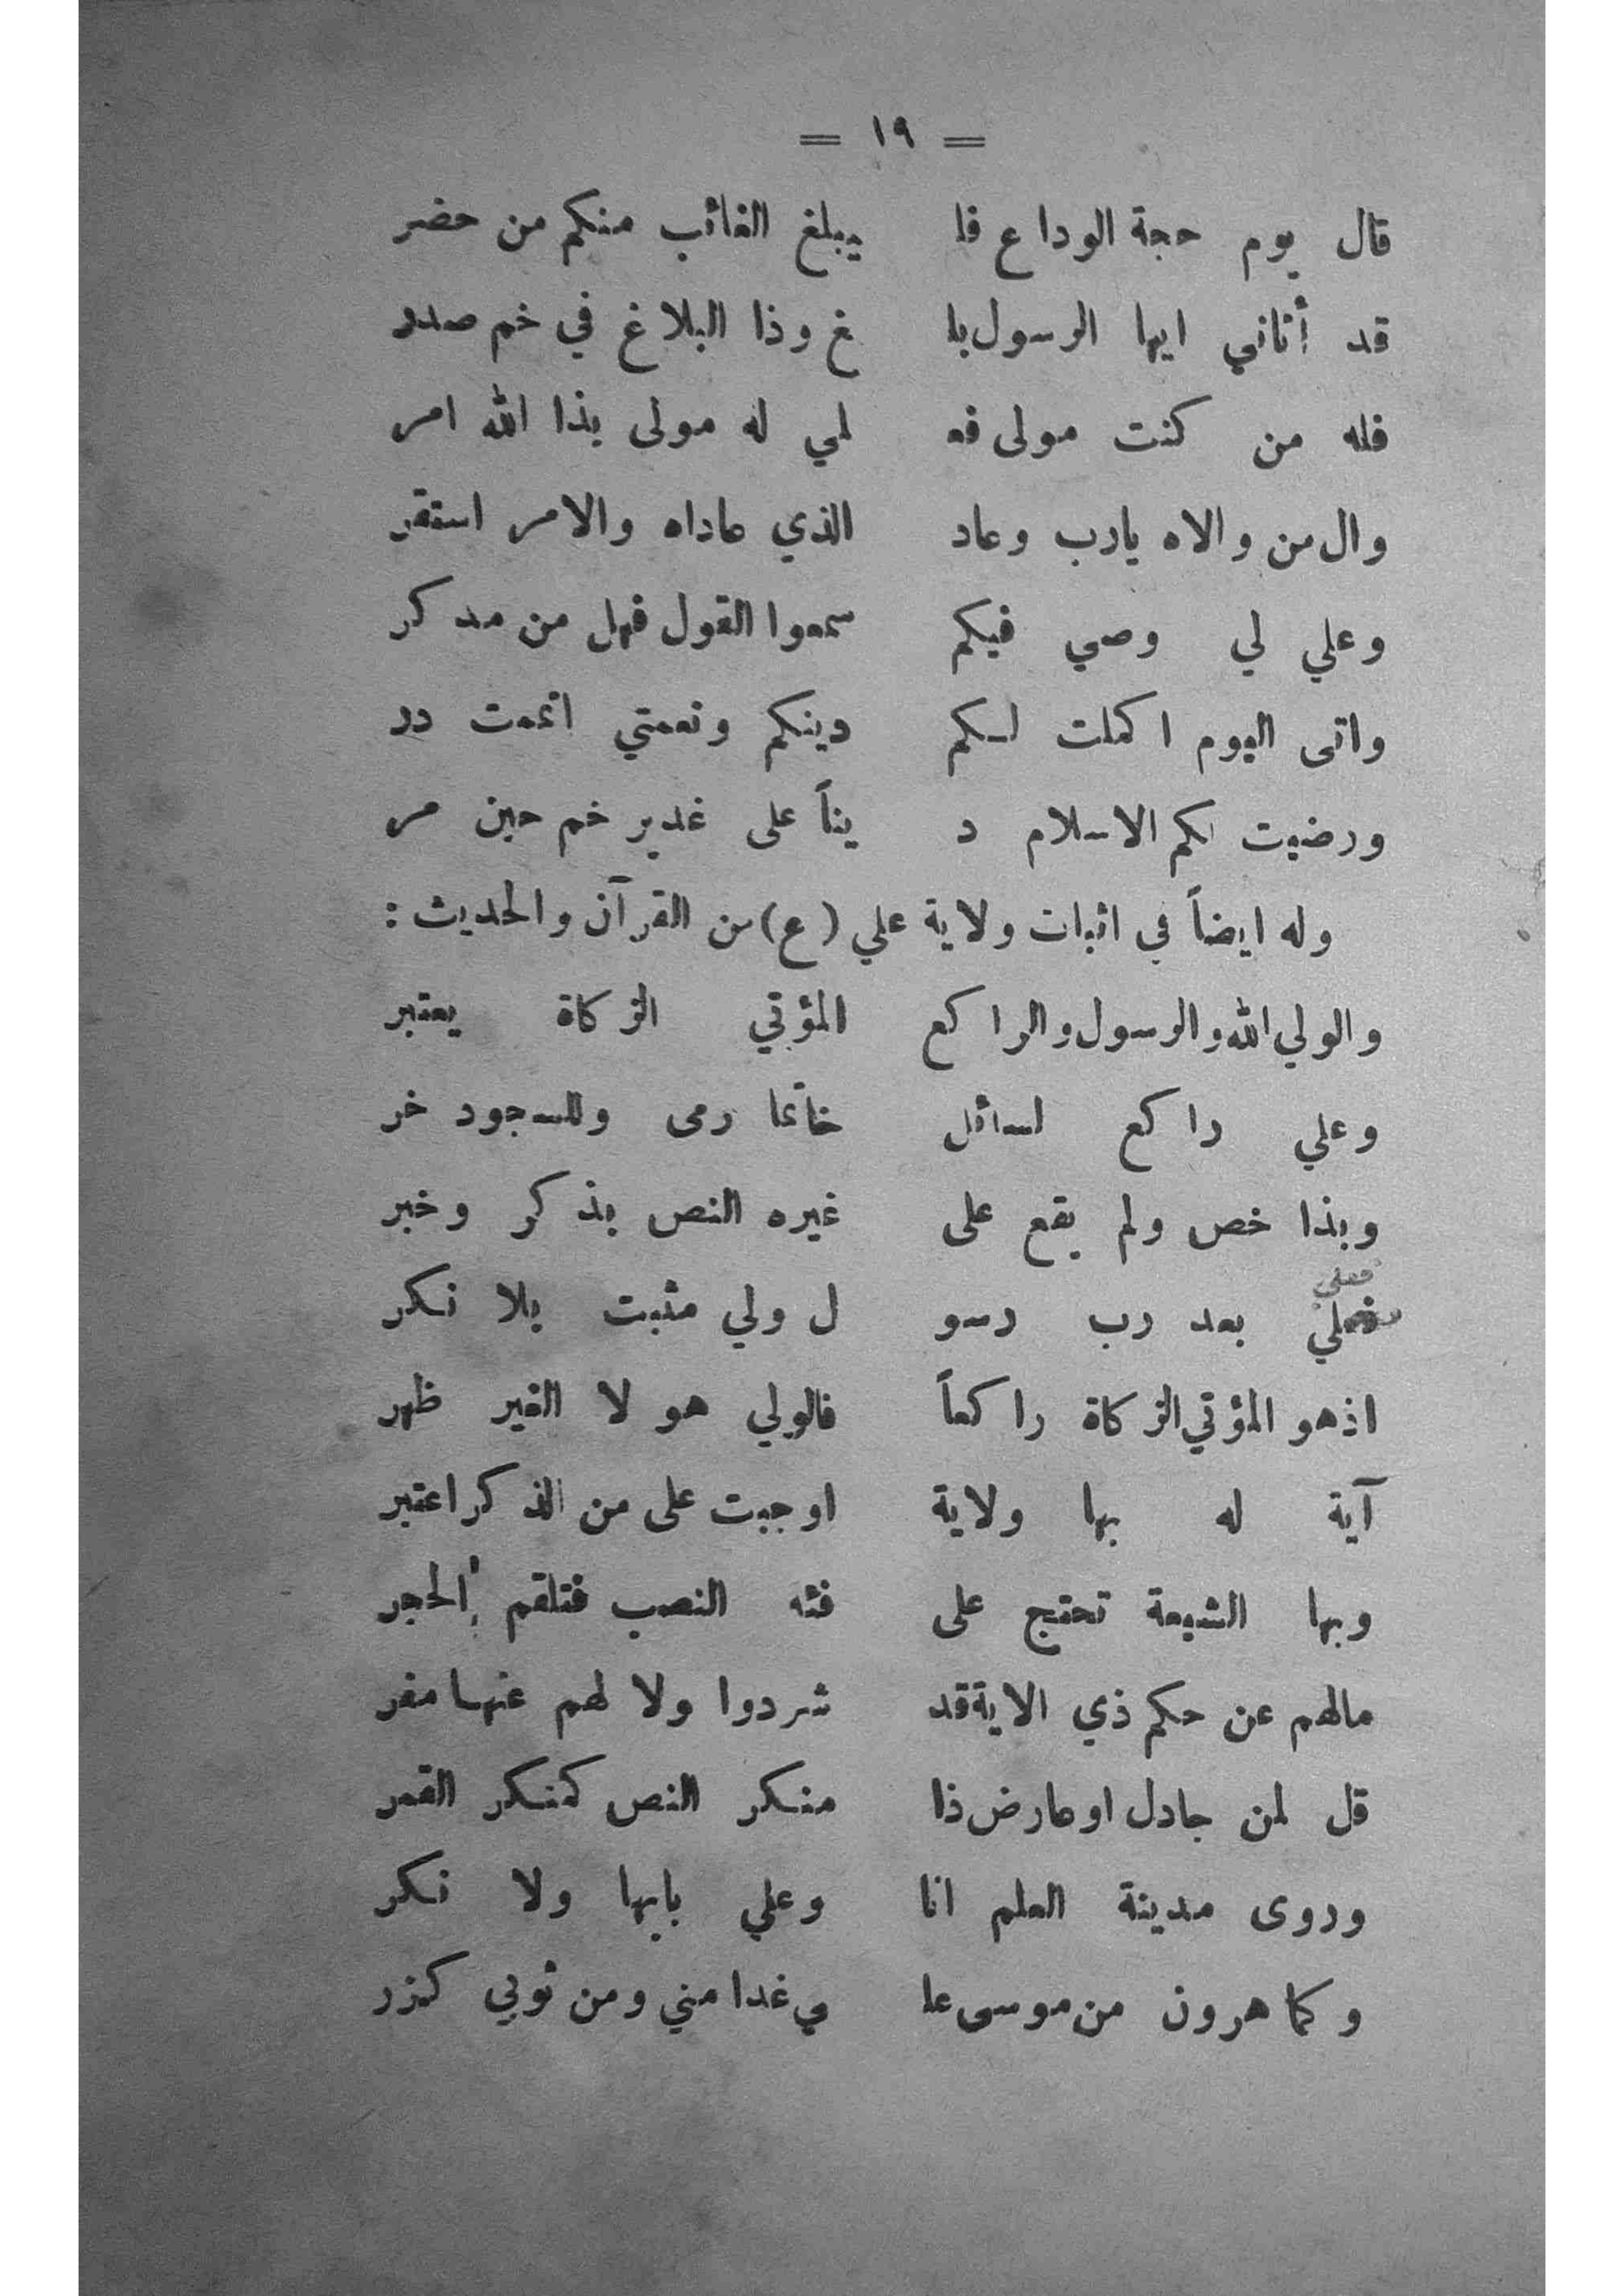 = ١٩ =
قال يوم حجة الوداع فا يبلغ الغائب منكم من حضر
قد أتاني ايها الرسول بلـ غ وذا البلاغ في خم صدر
فله من كنت مولى فعـ لمي له مولى بذا الله امر
وال من والاه يارب وعاد الذي عاداه والامر استقر
وعلي لي وصي فيكم سمعوا القول فهل من مدكر
واتى اليوم اكملت لكم دينكم ونعمتي اتممت در
ورضيت لكم الاسلام د يناً على غدير خم حين مر
وله ايضاً في اثبات ولاية علي (ع) من القرآن والحديث :
والولي الله والرسول والراكع المؤتي الزكاة يعتبر
وعلي راكع لسائل خاتما رمى وللسجود خر
وبذا خص ولم يقع على غيره النص بذكر وخبر
فعلي
فعلي بعد رب رسو ل ولي مثبت بلا نكر
اذهو المؤتي الزكاة راكعاً فالولي هو لا الغير ظهر
آية له بها ولاية اوجبت على من الذكر اعتبر
وبها الشيعة تحتج على فئه النصب فتلقم الحجر
مالهم عن حكم ذي الاية قد شردوا ولا لهم عنها مفر
قل لمن جادل او عارض ذا منكر النص كمنكر القمر
وروى مدينة العلم انا وعلي بابها ولا نكر
وكما هرون من موسى علـ ي غدا مني ومن ثوبي كزر